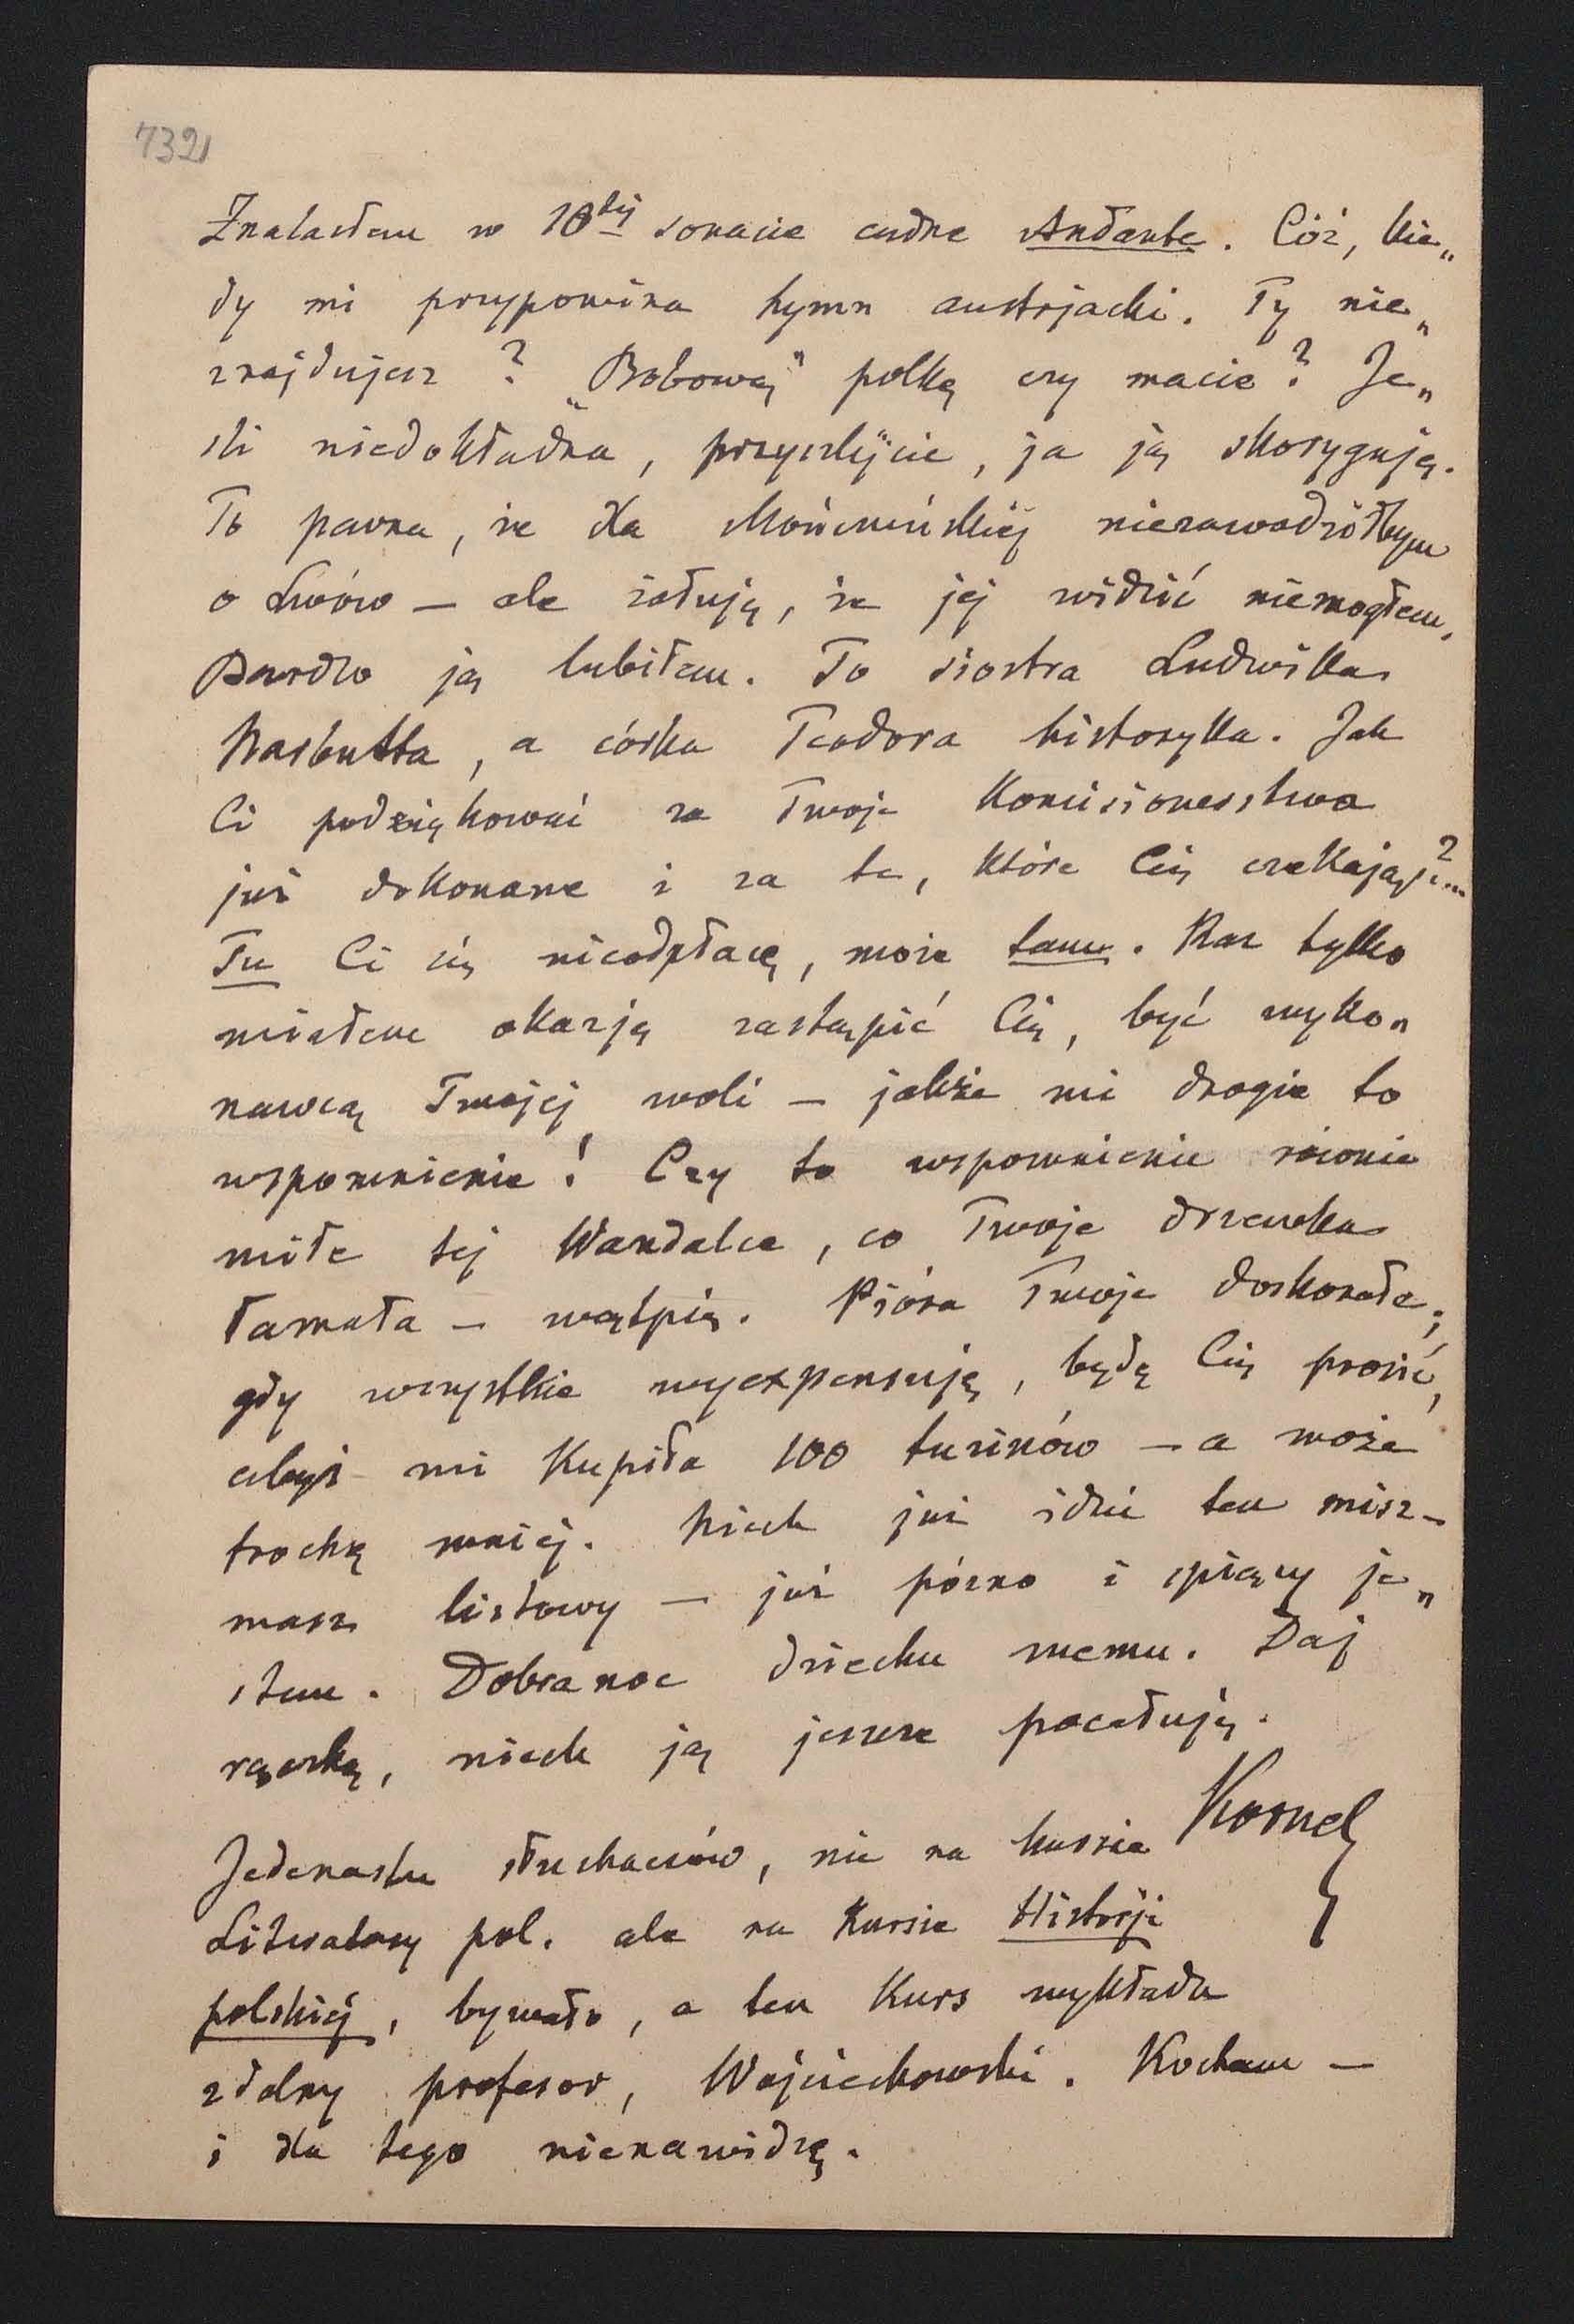 732
Znalazłem w 10tej sonacie cudne Andante. Cóż, kie„
dy mi przypomina hymn austrjacki. Ty nie„
znajdujesz? „Bobową” polkę czy macie? Je„
śli niedokładna, przyszlijcie, ja ją skoryguję.
To pewna, że dla Mończuńskiéj niezawadziłbym
o Lwów — ale żałuję, że jéj widzić niemogłem,
Bardzo ją lubiłem. To siostra Ludwika
Narbutta, a córka Teodora historyka. Jak
Ci podziękować za Twoje komisionerstwa
już dokonane i za te, które Cię czekają?...
Tu Ci się nieodpłacę, może tam. Raz tylko
miałem okazję zastąpić Cię, być wyko„
nawcą Twojéj woli — jakże mi drogie to
wspomnienie! Czy to wspomnienie równie
miłe téj Wandalce, co Twoje drzewka
łamała — wątpię. Pióra Twoje doskonałe;
gdy wszystkie wyexpensuję, będę Cię prosić,
abyś mi kupiła 100 tuzinów — a może
trochę mniéj. Niech już idzie ten misz-
masz listowy — już późno i śpiący je„
stem. Dobranoc dziecku memu. Daj
rączkę, niech ją jeszcze pocałuję.
Kornel
Jedenastu słuchaczów, nie na kursie
Literatury pol. ale na kursie Historji
polskiéj, bywało, a ten kurs wykłada
zdolny profesor, Wojciechowski. Kocham —
i dla tego nienawidzę.